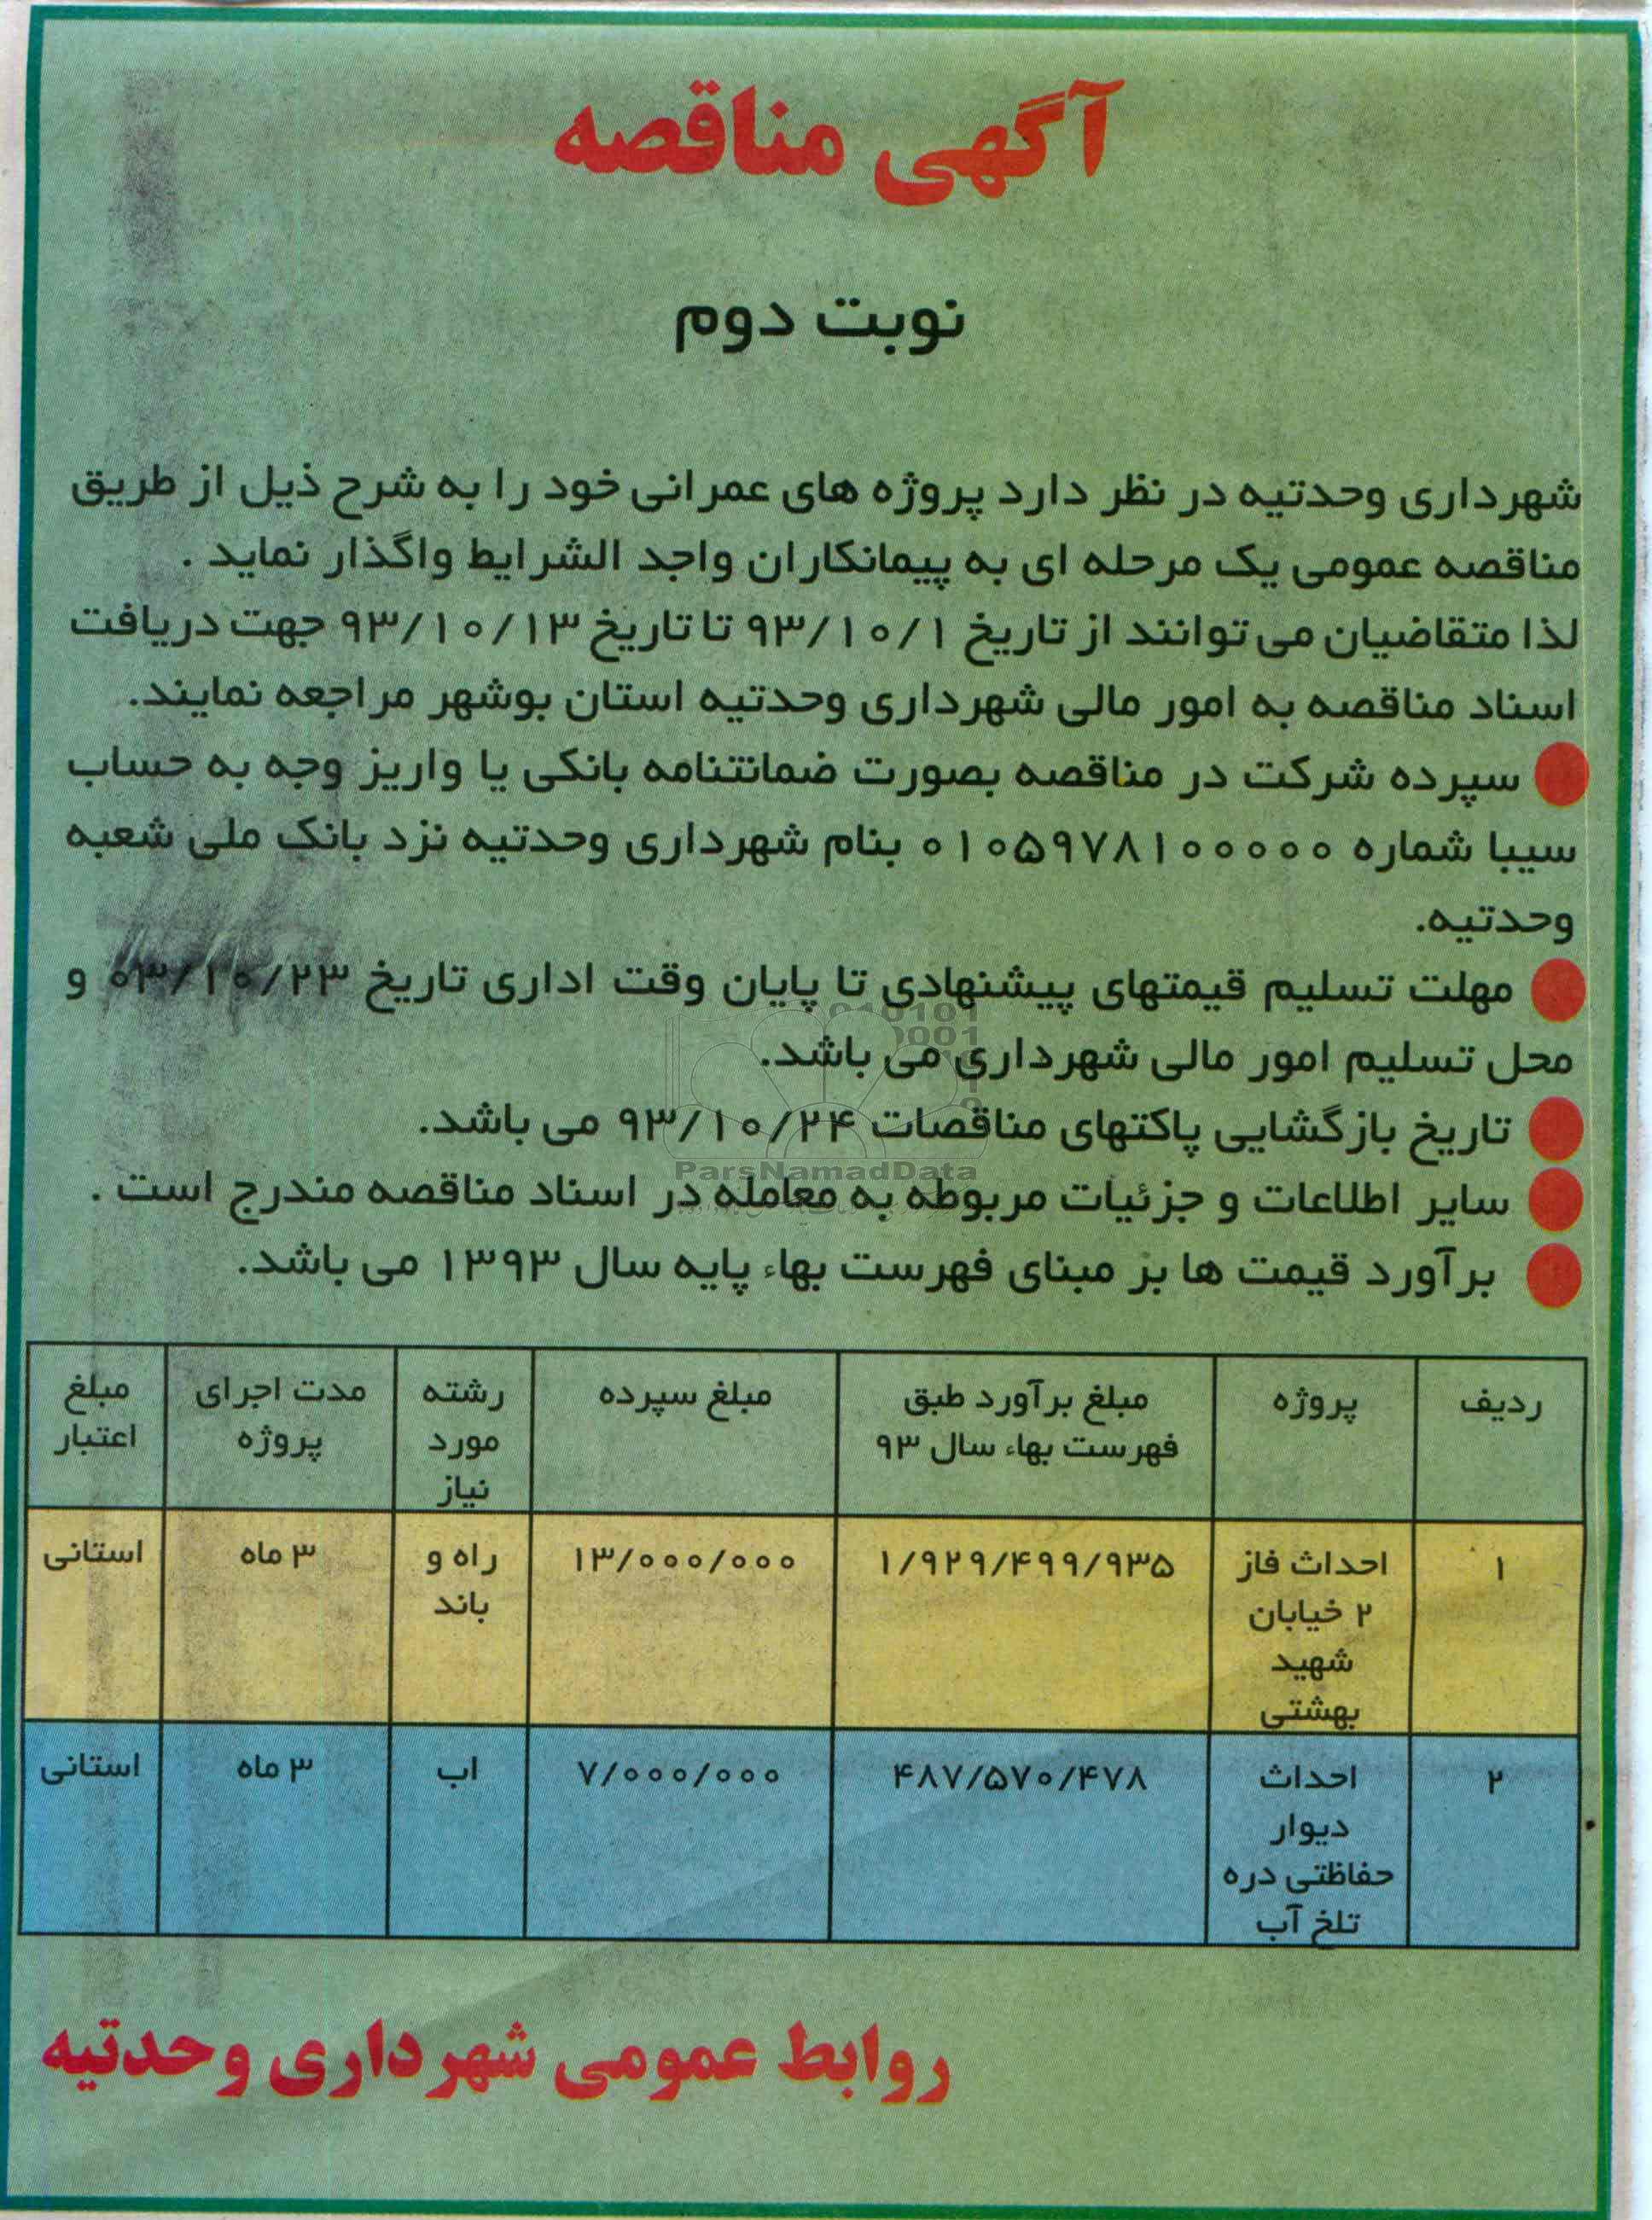 آگهی مناقصه
نوبت دوم
شهرداری وحدتیه در نظر دارد پروژه های عمرانی خود را به شرح ذیل از طریق
مناقصه عمومی یک مرحله ای به پیمانکاران واجد الشرایط واگذار نماید .
لذا متقاضیان می توانند از تاریخ ۹۳/۱۰/۱ تا تاریخ ۹۳/۱۰/۱۳ جهت دریافت
اسناد مناقصه به امور مالی شهرداری وحدتیه استان بوشهر مراجعه نمایند.
سپرده شرکت در مناقصه بصورت ضمانتنامه بانکی یا واریز وجه به حساب
سیبا شماره ۰۱۰۵۹۷۸۱۰۰۰۰۰ بنام شهرداری وحدتیه نزد بانک ملی شعبه
وحدتیه.
مهلت تسلیم قیمتهای پیشنهادی تا پایان وقت اداری تاریخ ۹۳/۱۰/۲۳ و
محل تسلیم امور مالی شهرداری می باشد.
تاریخ بازگشایی پاکتهای مناقصات ۹۳/۱۰/۲۴ می باشد.
ParsNamadData
سایر اطلاعات و جزئیات مربوطه به معامله در اسناد مناقصه مندرج است .
برآورد قیمت ها بر مبنای فهرست بهاء پایه سال ۱۳۹۳ می باشد.
ردیف پروژه مبلغ برآورد طبق مبلغ سپرده رشته مدت اجرای مبلغ
فهرست بهاء سال ۹۳ مورد پروژه اعتبار
نیاز
۱ احداث فاز ۱/۹۲۹/۴۹۹/۹۳۵ ۱۳/۰۰۰/۰۰۰ راه و ۳ ماه استانی
۲ خیابان باند
شهید
بهشتی
۲ احداث ۴۸۷/۵۷۰/۴۷۸ ۷/۰۰۰/۰۰۰ اب ۳ ماه استانی
دیوار
حفاظتی دره
تلخ آب
روابط عمومی شهرداری وحدتیه